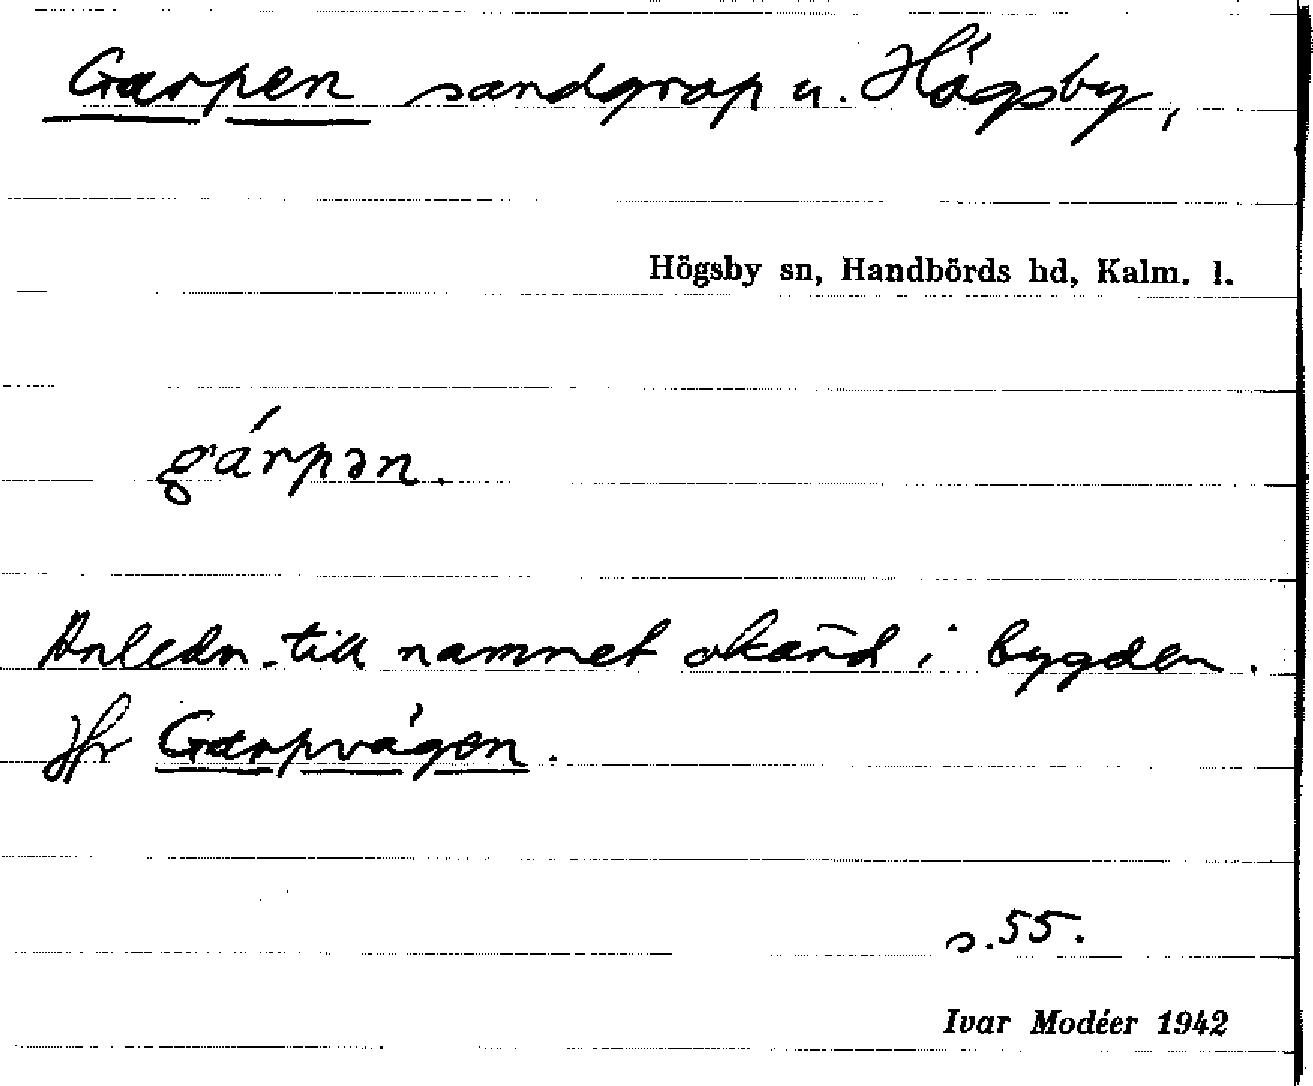 Garpen sandgrop u. Högsby,
Högsby sn, Handbörds hd, Kalm. l.
gárpən.
Anledn. till namnet okänd i bygden.
Jfr Garpvågen.
s. 55.
Ivar Modéer 1942